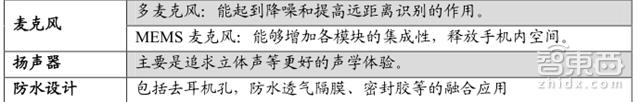 麦克风
多麦克风：能起到降噪和提高远距离识别的作用。
MEMS 麦克风：能够增加各模块的集成性，释放手机内空间。
扬声器
主要是追求立体声等更好的声学体验。
防水设计
包括去耳机孔，防水透气隔膜、密封胶等的融合应用
智东西